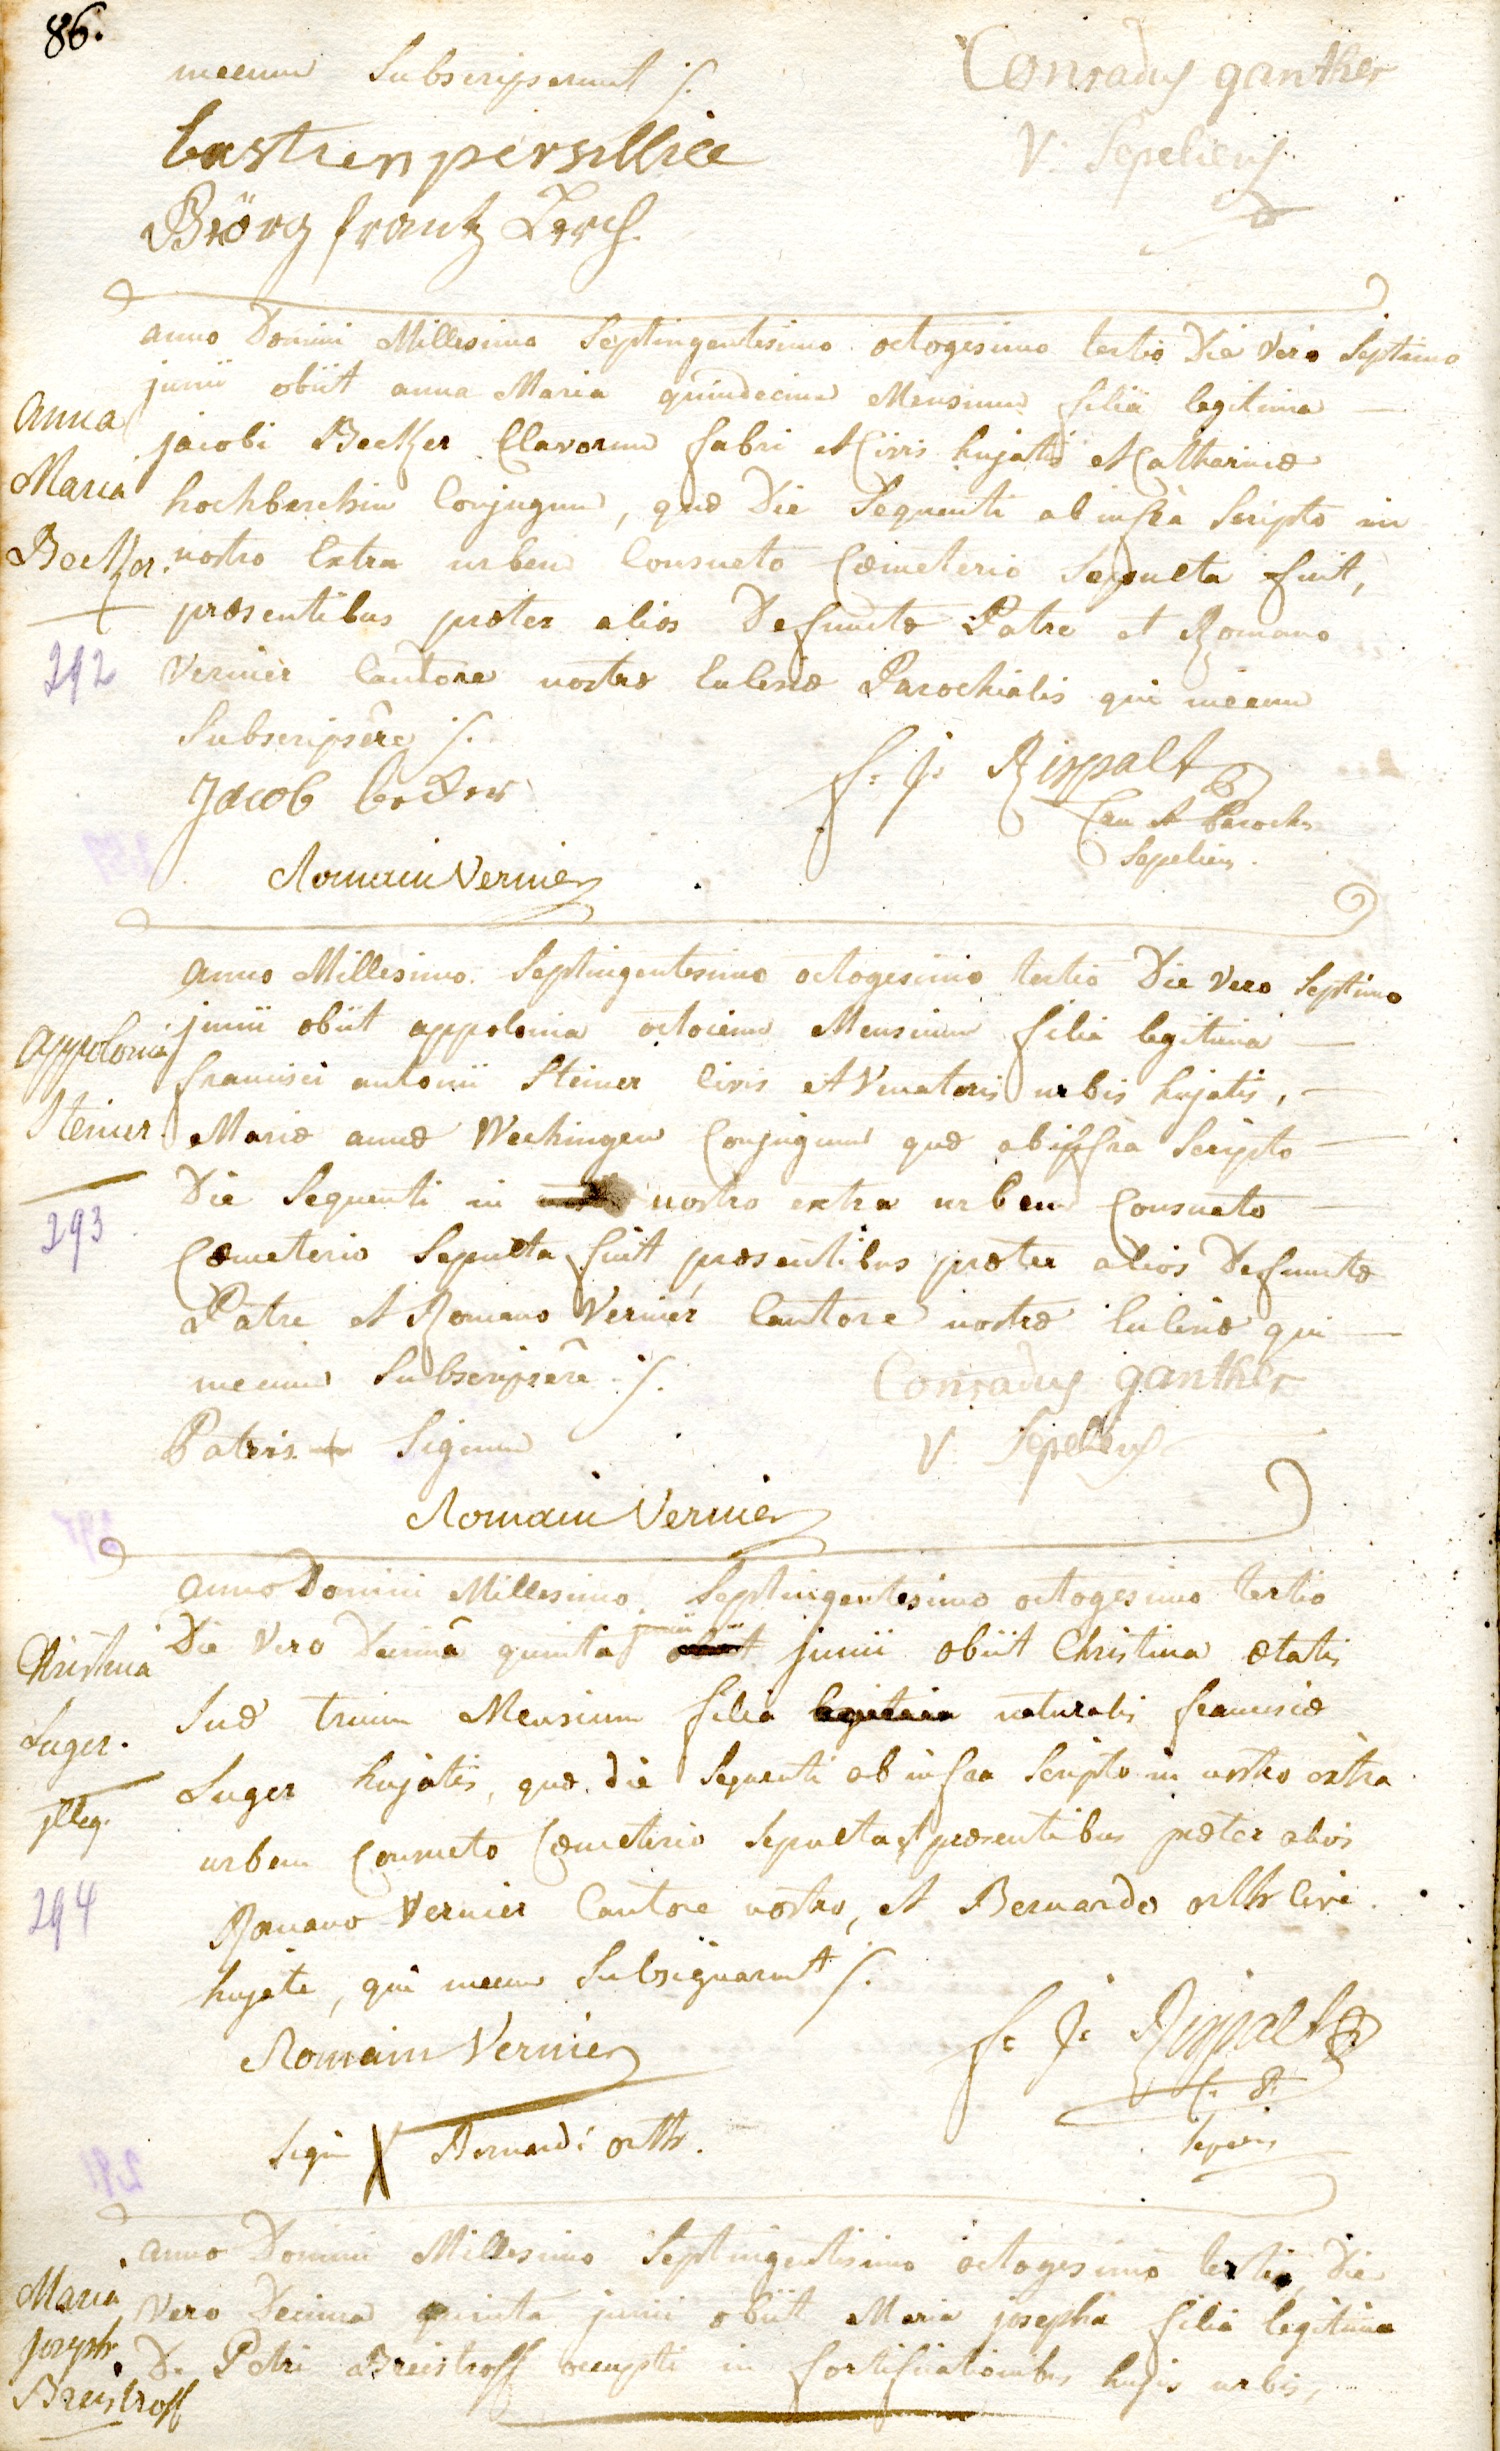 86.
mecum Subscripserunt ./.
Conradus ganther
bastien persillice
V. Sepeliens
Geörg frantz Lerch
anno Domini Millesimo Septingentesimo octogesimo tertio Die Vero Septimo
junii obiit anna Maria quindecim Mensium filia legitima —
jacobi Becker Clavorum fabri et Civis hujatis et Catharinæ
hochberchin Conjugum, quæ Die Sequenti ab infra Scripto in
nostro Extra urbem Consueto Cœmeterio Sepulta fuit,
præsentibus præter alios Defunctæ Patre et Romano
Vernier Cantore nostræ Eclesiæ Parochialis qui mecum
Subscripsêre ./.
Anna
Maria
Becker.
292
Jacob becker
f: j: Rippalt
Can et Paroch
Sepeliens.
Romain Vernier
anno Millesimo Septingentesimo octogesimo tertio Die Vero Septimo
junii obiit appolonia octocim Mensium filia legitima —
francisci antonii Steiner Civis et Venatoris urbis hujatis, —
Mariæ annæ Wechingen Conjugum quæ ab infra Scripto —
Die Sequenti in nostro extra urbem Consueto —
Cœmeterio Sepulta fuit præsentibus præter alios Defunctæ
Patre et Romano Vernier Cantore nostræ Eclesiæ qui —
mecum Subscripsêre ./.
appolonia
Steiner.
293
Conradus ganther
Patris + Signum
V. Sepeliens
Romain Vernier
anno Domini Millesimo Septingentesimo octogesimo tertio
Die Vero Decimâ quinta junii obiit Christina ætatis
Suæ trium Mensium filia legitima naturalis franciscæ
Luger hujatis, quæ die Sequenti ab infra Scripto in nostro extra
urbem Consueto Cœmeterio Sepulta, præsentibus præter alios
Romano Vernier Cantore nostro, et Bernardo orth Cive
hujate, qui mecum Subsignarunt ./.
Christina
Luger.
jlleg.
294
Romain Vernier
f: j: Rippalt
C. P.
Sepeliens
Sign X Bernardi orth.
anno Domini Millesimo Septingentesimo octogesimo tertio, Die
Vero Decima quinta junii obiit Maria josepha filia legitima
D. Petri Breistroff occupti in fortificationibus hujis urbis,
Maria
joseph.
Breistroff